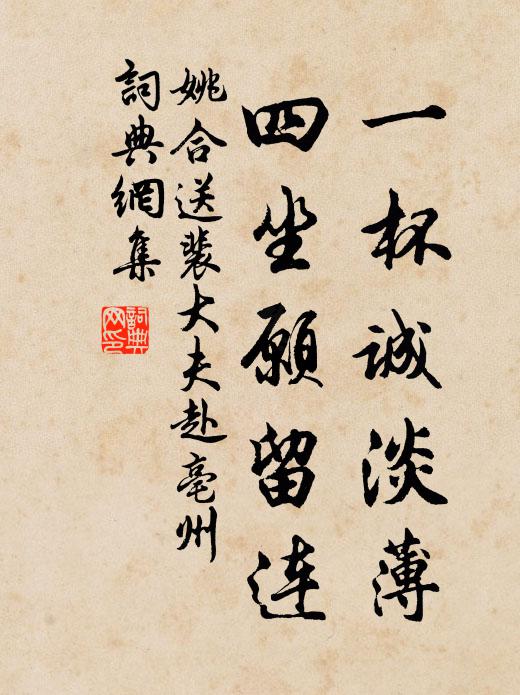 一杯誠淡薄
四坐願留連
姚合送裴大夫赴亳州
詞典網集
詞典网印